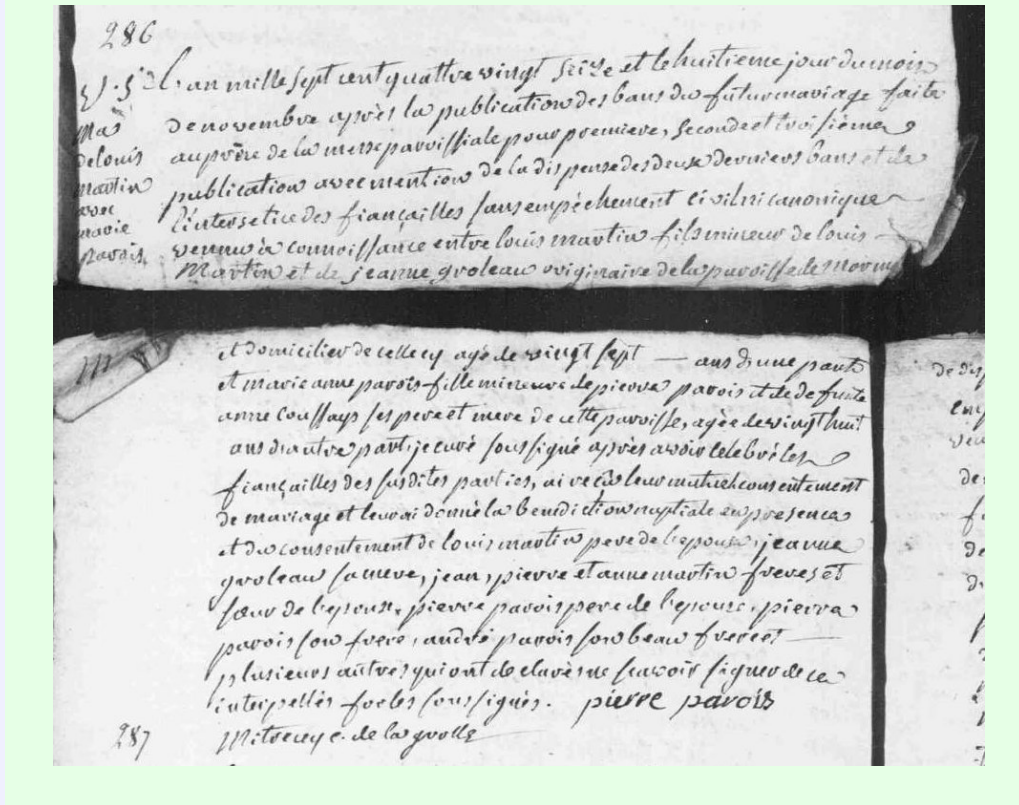 286
L'an mille sept cent quattre vingt seize et le huitieme jour du mois
de novembre après la publication des bans du futur mariage faite
au prône de la messe paroissiale pour premiere, seconde et troisième
publication avec mention de la dispense des deux derniers bans et de
l'intersetice des fiançailles sans empêchement civil ni canonique
vennu à connoissance entre louis martin fils mineur de louis
Martin et de jeanne groleau originaire de la paroisse de
Ma
de louis
martin
avec
marie
parois
et domicilier de celle cy agé de vingt sept — ans d'une part
et marie anne parois fille mineure de pierre parois et de defunte
anne coussays ses pere et mere de cette paroisse, agée de vingt huit
ans d'autre part, je curé soussigné après avoir celebré les
fiançailles des susdites parties, ai reçû leur mutuel consentement
de mariage et leur ai donné la benediction nuptiale en presence
et du consentement de louis martin pere de l'epoux, jeanne
groleau sa mere, jean, pierre et anne martin freres et
sœur de l'epoux, pierre parois pere de l'epouse, pierre
parois son frere, andré parois son beau frere et —
plusieurs autres qui ont declarès ne sçavoir signer de ce
interpellés fors les soussignés. pierre parois
287
c. de la grolle